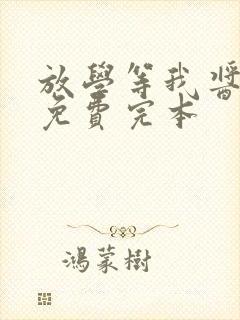 放學等我醬
免費完本
鴻蒙樹